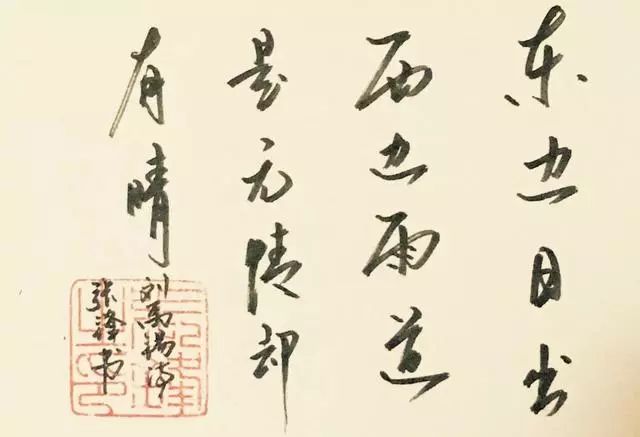 东边日出
西边雨道
是无情却
有晴
刘禹锡诗
张锋书